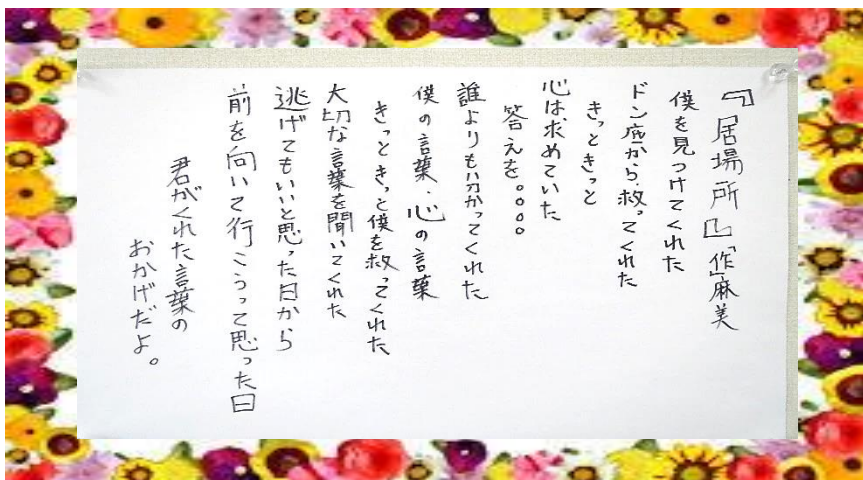 『居場所』「作」麻美
僕を見つけてくれた
ドン底から救ってくれた
きっときっと
心は求めていた
答えを。。。。
誰よりも分かってくれた
僕の言葉、心の言葉
きっときっと僕を救ってくれた
大切な言葉を聞いてくれた
逃げてもいいと思った日から
前を向いて行こうって思った日
君がくれた言葉の
おかげだよ。